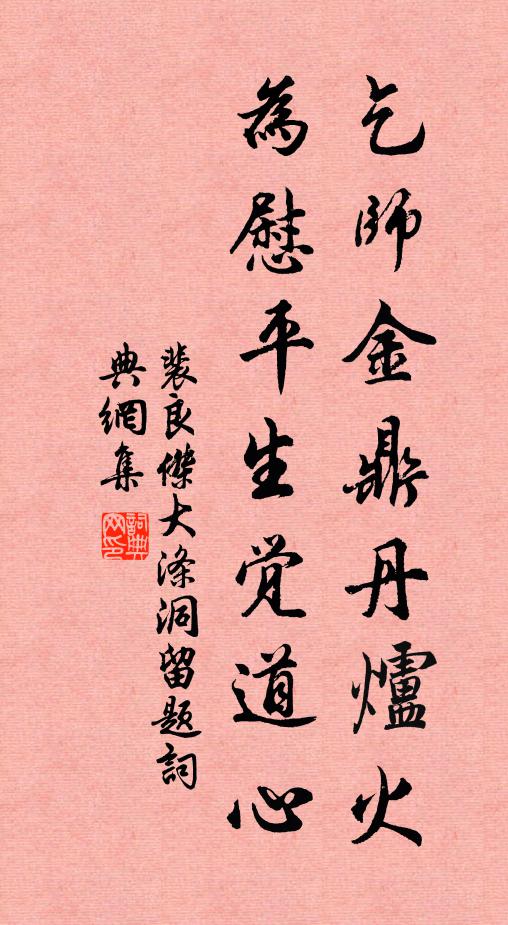 乞師金鼎丹爐火
為慰平生觉道心
裴良傑大滌洞留题詞
典網集
詞典
网印